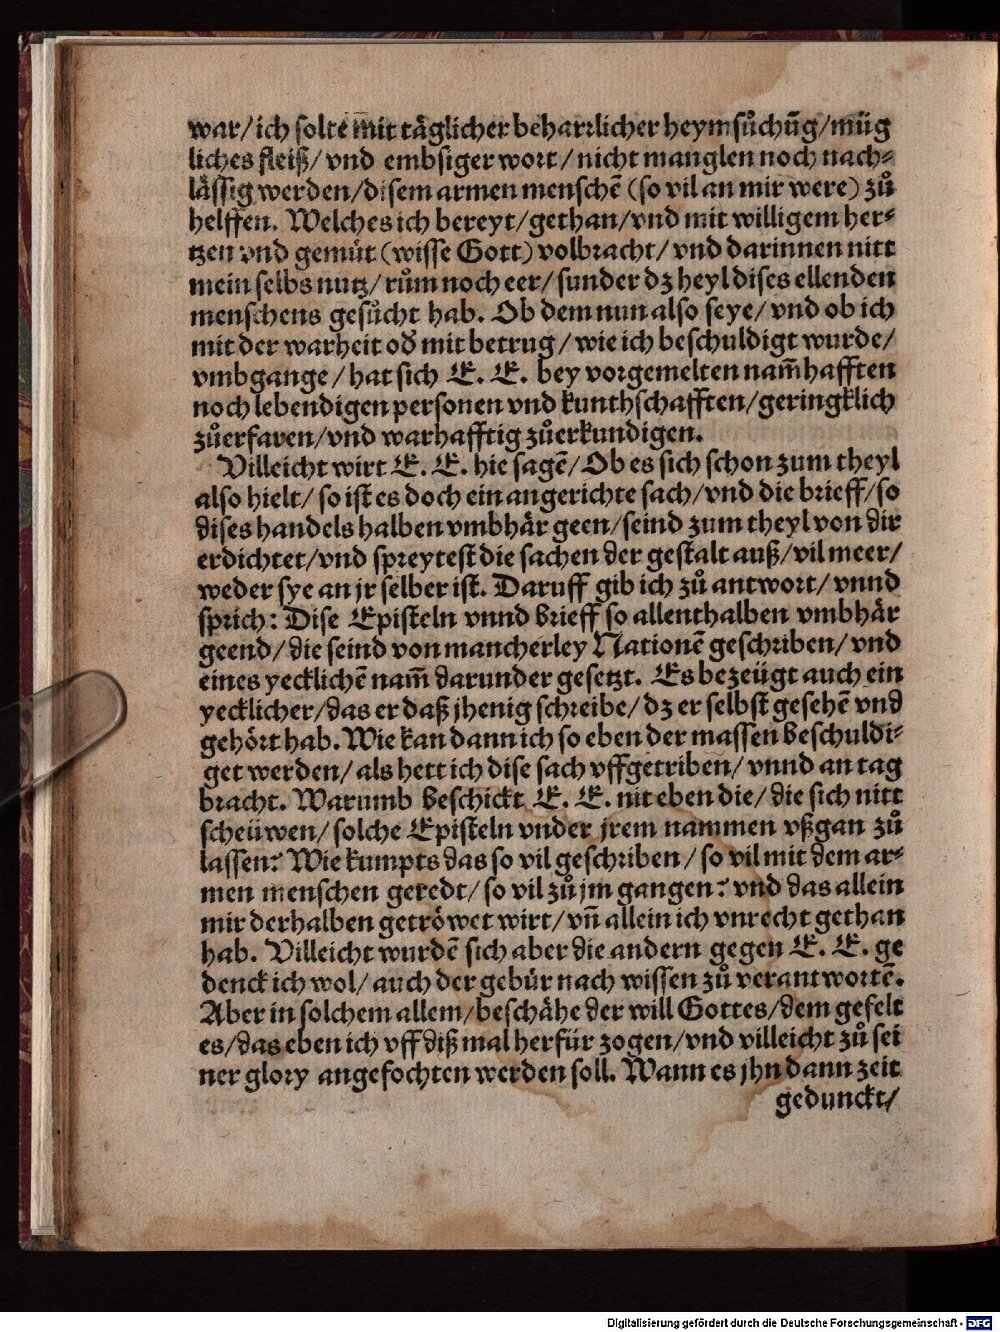 war/ ich solte mit täglicher beharrlicher heymsůchūg/ müg
liches fleiß/ vnd embsiger wort/ nicht manglen noch nach⸗
lässig werden/ disem armen menschē (so vil an mir were) zů
helffen. Welches ich bereyt/ gethan/ vnd mit willigem her⸗
tzen vnd gemüt (wisse Gott) volbracht/ vnd darinnen nitt
mein selbs nutz/ rům noch eer/ sunder dz heyl dises ellenden
menschens gesůcht hab. Ob dem nun also seye/ vnd ob ich
mit der warheit od̓ mit betrug/ wie ich beschuldigt wurde/
vmbgange/ hat sich E. E. bey vorgemelten nam̄hafften
noch lebendigen personen vnd kunthschafften/ geringklich
zůerfaren/ vnd warhafftig zůerkundigen.
Villeicht wirt E. E. hie sagē/ Ob es sich schon zum theyl
also hielt/ so ist es doch ein angerichte sach/ vnd die brieff/ so
dises handels halben vmbhår geen/ seind zum theyl von dir
erdichtet/ vnd spreytest die sachen der gestalt auß/ vil meer/
weder sye an jr selber ist. Daruff gib ich zů antwort/ vnnd
sprich: Dise Episteln vnnd brieff so allenthalben vmbhår
geend/ die seind von mancherley Nationē geschriben/ vnd
eines yecklichē nam̄ darunder gesetzt. Es bezeügt auch ein
yecklicher/ das er daß jhenig schreibe/ dz er selbst gesehē vnd
gehört hab. Wie kan dann ich so eben der massen beschuldi⸗
get werden/ als hett ich dise sach vffgetriben/ vnnd an tag
bracht. Warumb beschickt E. E. nit eben die/ die sich nitt
scheüwen/ solche Epistelnvnder jrem nammen vßgan zů
lassen? Wie kumpts das so vil geschriben/ so vil mit dem ar⸗
men menschen geredt/ so vil zů jm gangen? vnd das allein
mir derhalben getröwet wirt/ vn̄ allein ich vnrecht gethan
hab. Villeicht wurdē sich aber die andern gegen E. E. ge
denck ich wol/ auch der gebür nach wissen zů verantwortē.
Aber in solchem allem/ beschåhe der will Gottes/ dem gefelt
es/ das eben ich vff diß mal herfür zogen/ vnd villeicht zů sei
ner glory angefochten werden soll. Wann es jhn dann zeit
gedunckt/
Digitalisierung gefördert durch die Deutsche Forschungsgemeinschaft - DFG